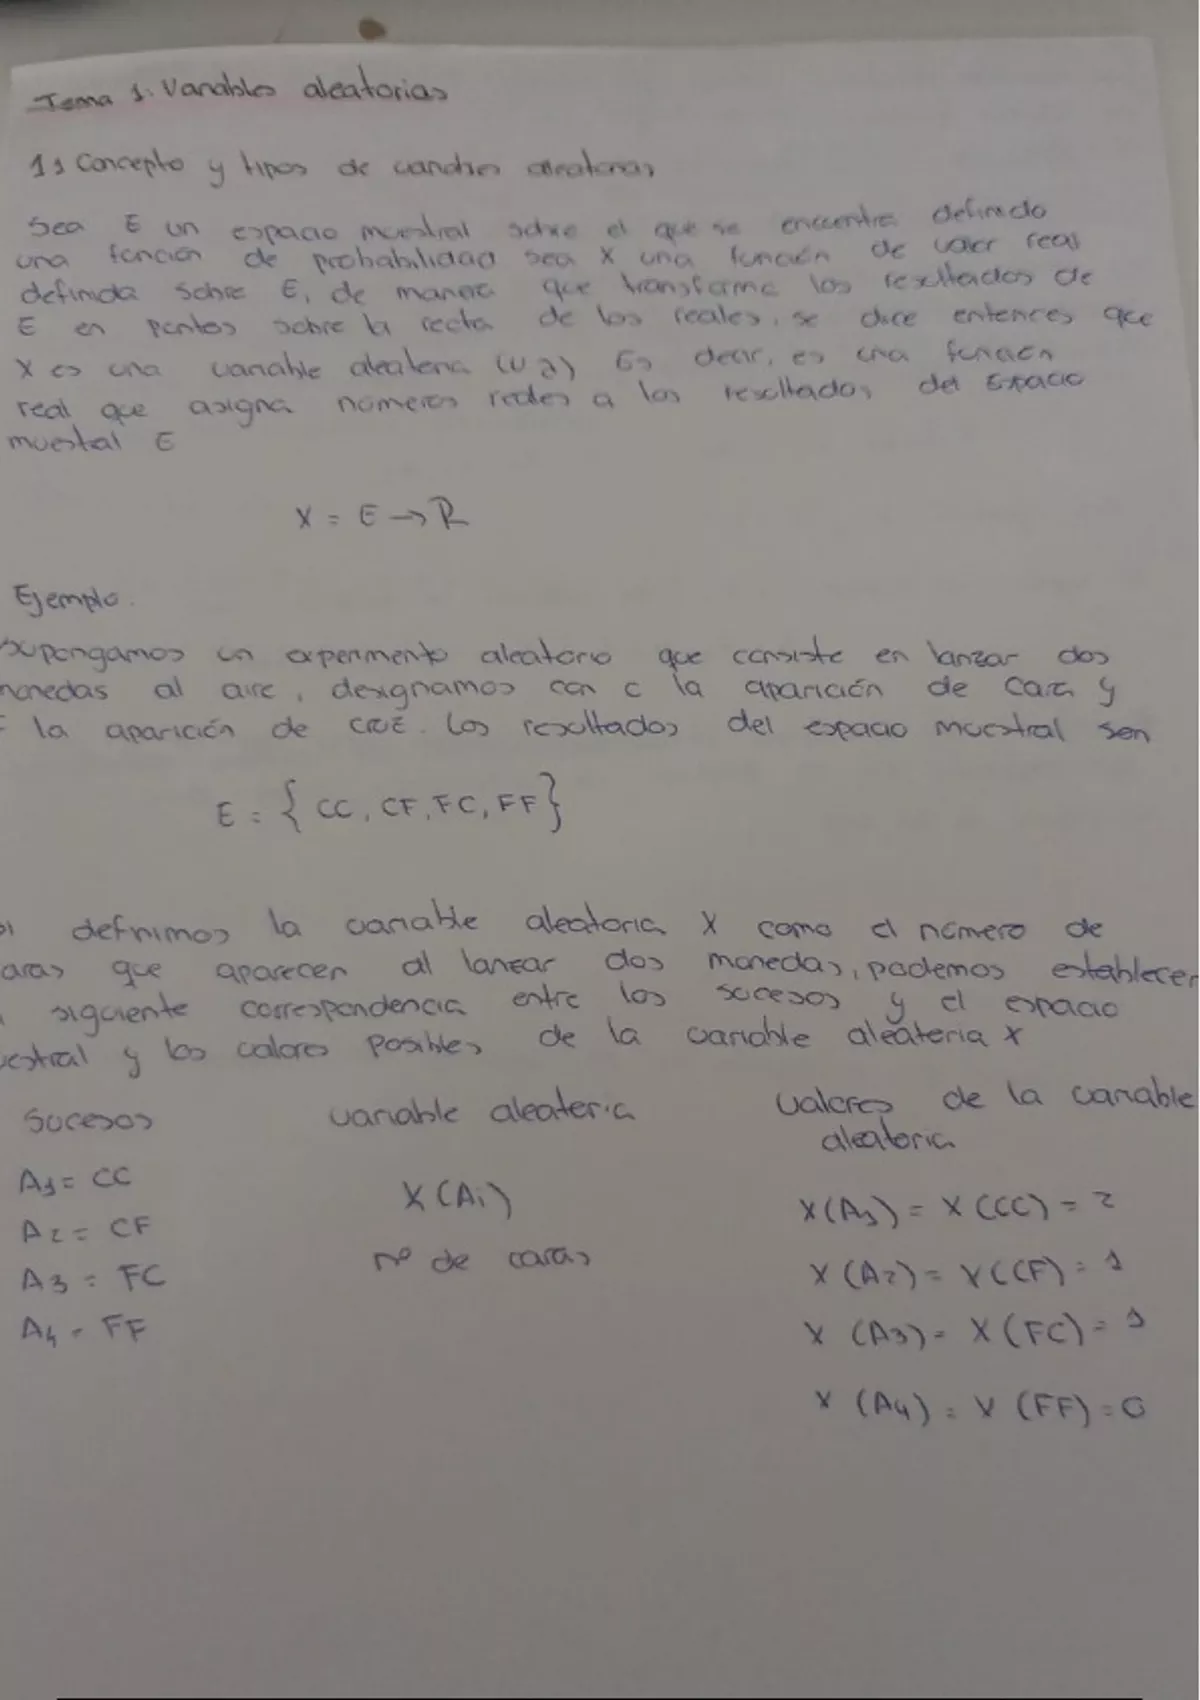 Tema 1. Variables aleatorias
1.1 Concepto y tipos de variables aleatorias
Sea E un espacio muestral sobre el que se encuentra definido
una función de probabilidad sea X una función de valor real
definida sobre E, de manera que transforma los resultados de
E en puntos sobre la recta de los reales, se dice entonces que
X es una variable aleatoria (v a) Es decir, es una función
real que asigna números reales a los resultados del Espacio
muestral E
X = E → R
Ejemplo.
Supongamos un experimento aleatorio que consiste en lanzar dos
monedas al aire, designamos con c la aparición de cara y
F la aparición de cruz. Los resultados del espacio muestral son
E = { CC, CF, FC, FF}
Si definimos la variable aleatoria X como el número de
aras que aparecen al lanzar dos monedas, podemos establecer
siguiente correspondencia entre los sucesos y el espacio
uestral y los valores posibles de la variable aleatoria x
Sucesos variable aleatoria valores de la variable
aleatoria
A1 = CC X (Ai) X(A1) = X (CC) = 2
A2 = CF nº de caras X (A2) = X (CF) = 1
A3 = FC X (A3) = X (FC) = 1
A4 = FF X (A4) = X (FF) = 0